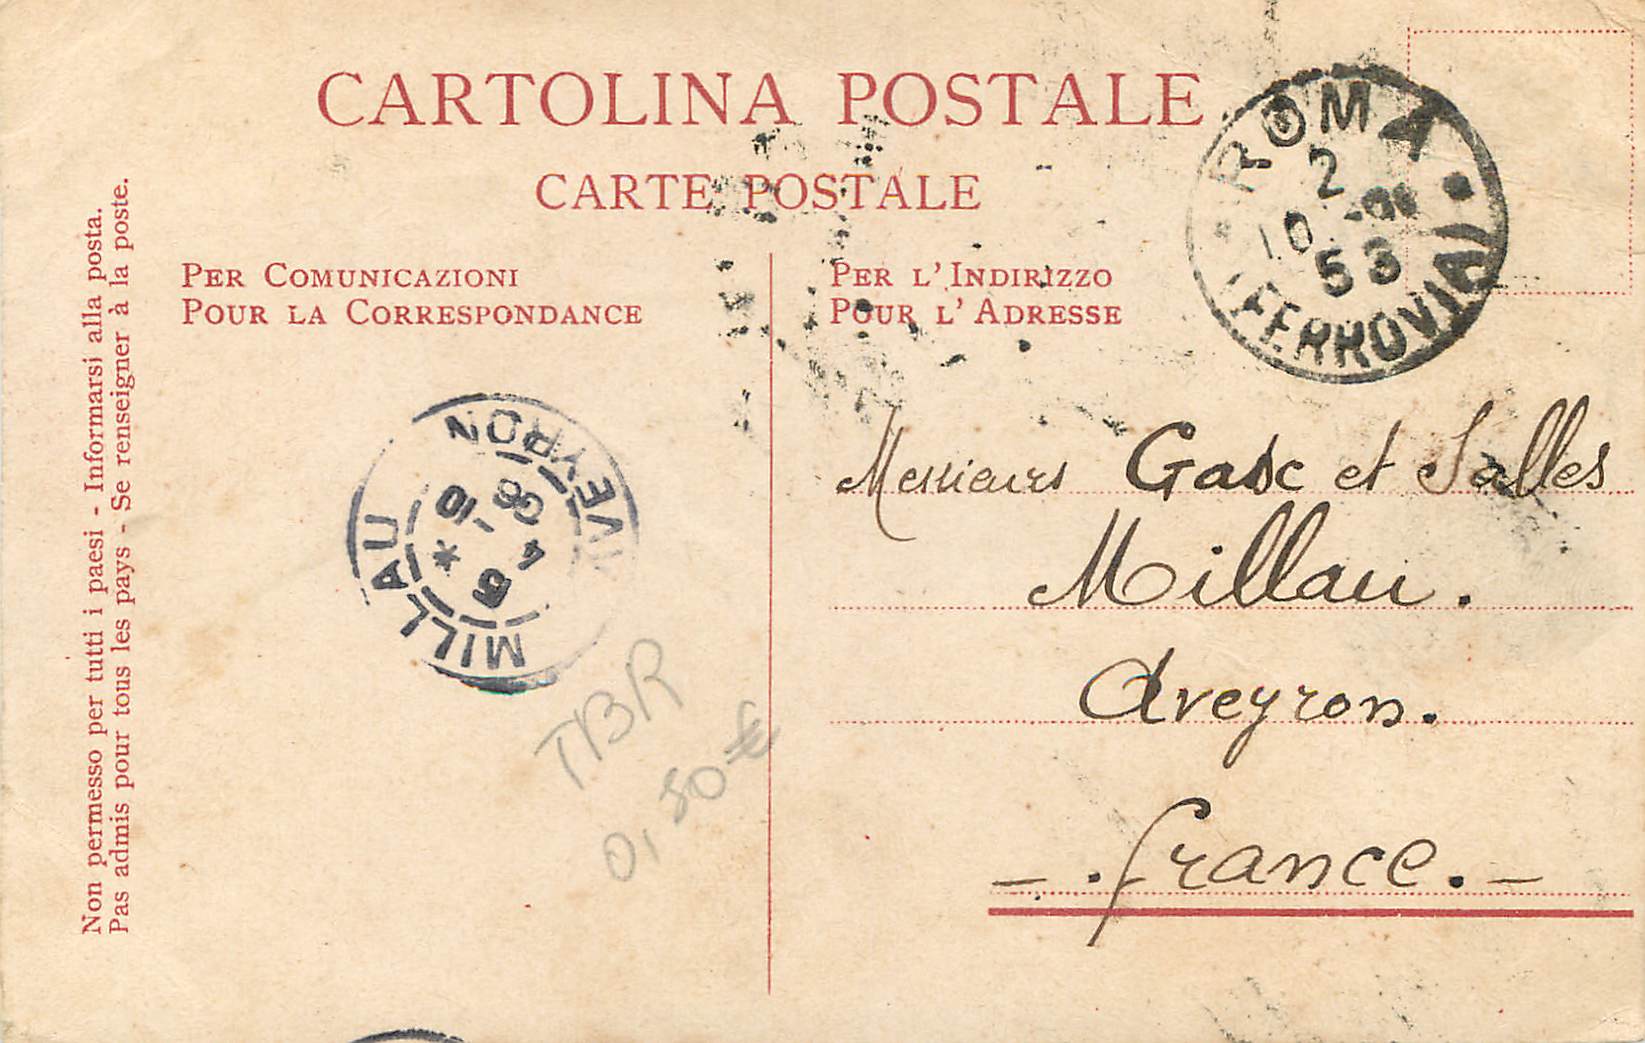 CARTOLINA POSTALE
CARTE POSTALE
Non permesso per tutti i paesi - Informarsi alla posta.
Pas admis pour tous les pays - Se renseigner à la poste.
PER COMUNICAZIONI
POUR LA CORRESPONDANCE
PER L'INDIRIZZO
POUR L'ADRESSE
ROMA
2
10
53
FERROVIA
MILLAU
AVEYRON
Messieurs Gasc et Salles
Millau.
Aveyron.
- . France. -
TBR
0,50 €